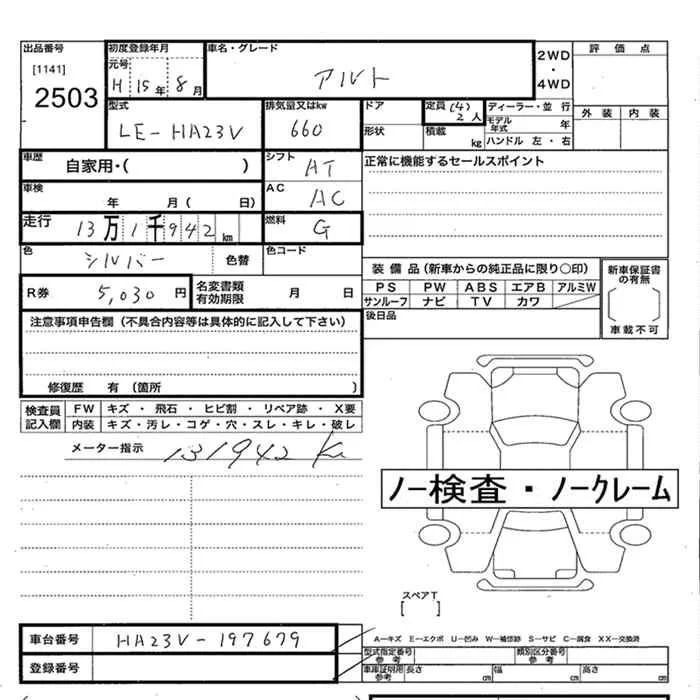 出品番号 初度登録年月 車名・グレード 2WD ・ 4WD 評価点
[1141] 元号
2503 H 15年 8月 アルト
型式 排気量又はkw ドア 定員 (4) 2人 ディーラー・並行 外装 内装
LE-HA23V 660 形状 積載 kg モデル年式 年
ハンドル 左・右
車歴 自家用・( ) シフト AT 正常に機能するセールスポイント
車検 年 月( 日) AC AC
走行 13万1千942km 燃料 G
色 シルバー 色替 色コード
装備品(新車からの純正品に限り〇印) 新車保証書の有無
R券 5,030円 名変書類有効期限 月 日 PS PW ABS エアB アルミW
サンルーフ ナビ TV カワ
後日品 車載不可
注意事項申告欄(不具合内容等は具体的に記入して下さい)
修復歴 有(箇所 )
検査員記入欄 FW キズ・飛石・ヒビ割・リペア跡・X要
内装 キズ・汚レ・コゲ・穴・スレ・キレ・破レ
メーター指示 131942 Km
ノー検査・ノークレーム
スペアT
[ ]
車台番号 HA23V-197679 A−キズ E−エクボ U−凹み W−補修跡 S−サビ C−腐食 XX−交換済
登録番号 型式指定番号参考 類別区分番号参考
車庫証明用参考 長さ cm 幅 cm 高さ cm